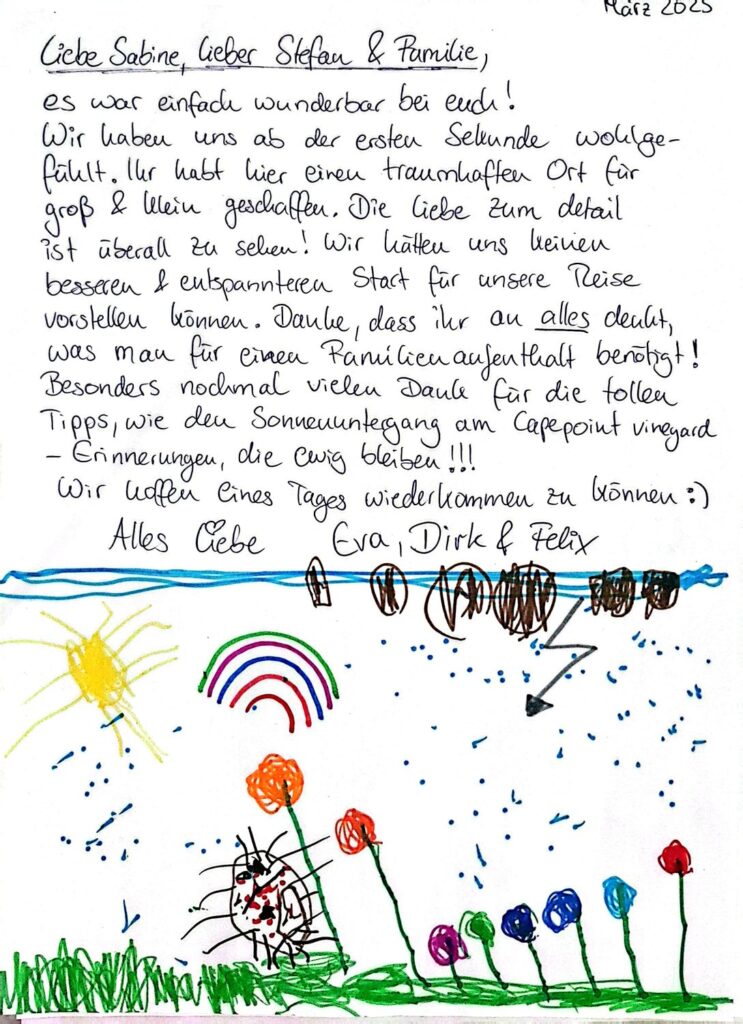 März 2025
Liebe Sabine, lieber Stefan & Familie,
es war einfach wunderbar bei euch!
Wir haben uns ab der ersten Sekunde wohlge-
fühlt. Ihr habt hier einen traumhaften Ort für
groß & klein geschaffen. Die Liebe zum detail
ist überall zu sehen! Wir hätten uns keinen
besseren & entspannteren Start für unsere Reise
vorstellen können. Danke, dass ihr an alles denkt,
was man für einen Familienaufenthalt benötigt!
Besonders nochmal vielen Dank für die tollen
Tipps, wie den Sonnenuntergang am Capepoint vineyard
– Erinnerungen, die ewig bleiben!!!
Wir hoffen eines Tages wiederkommen zu können :)
Alles Liebe Eva, Dirk & Felix